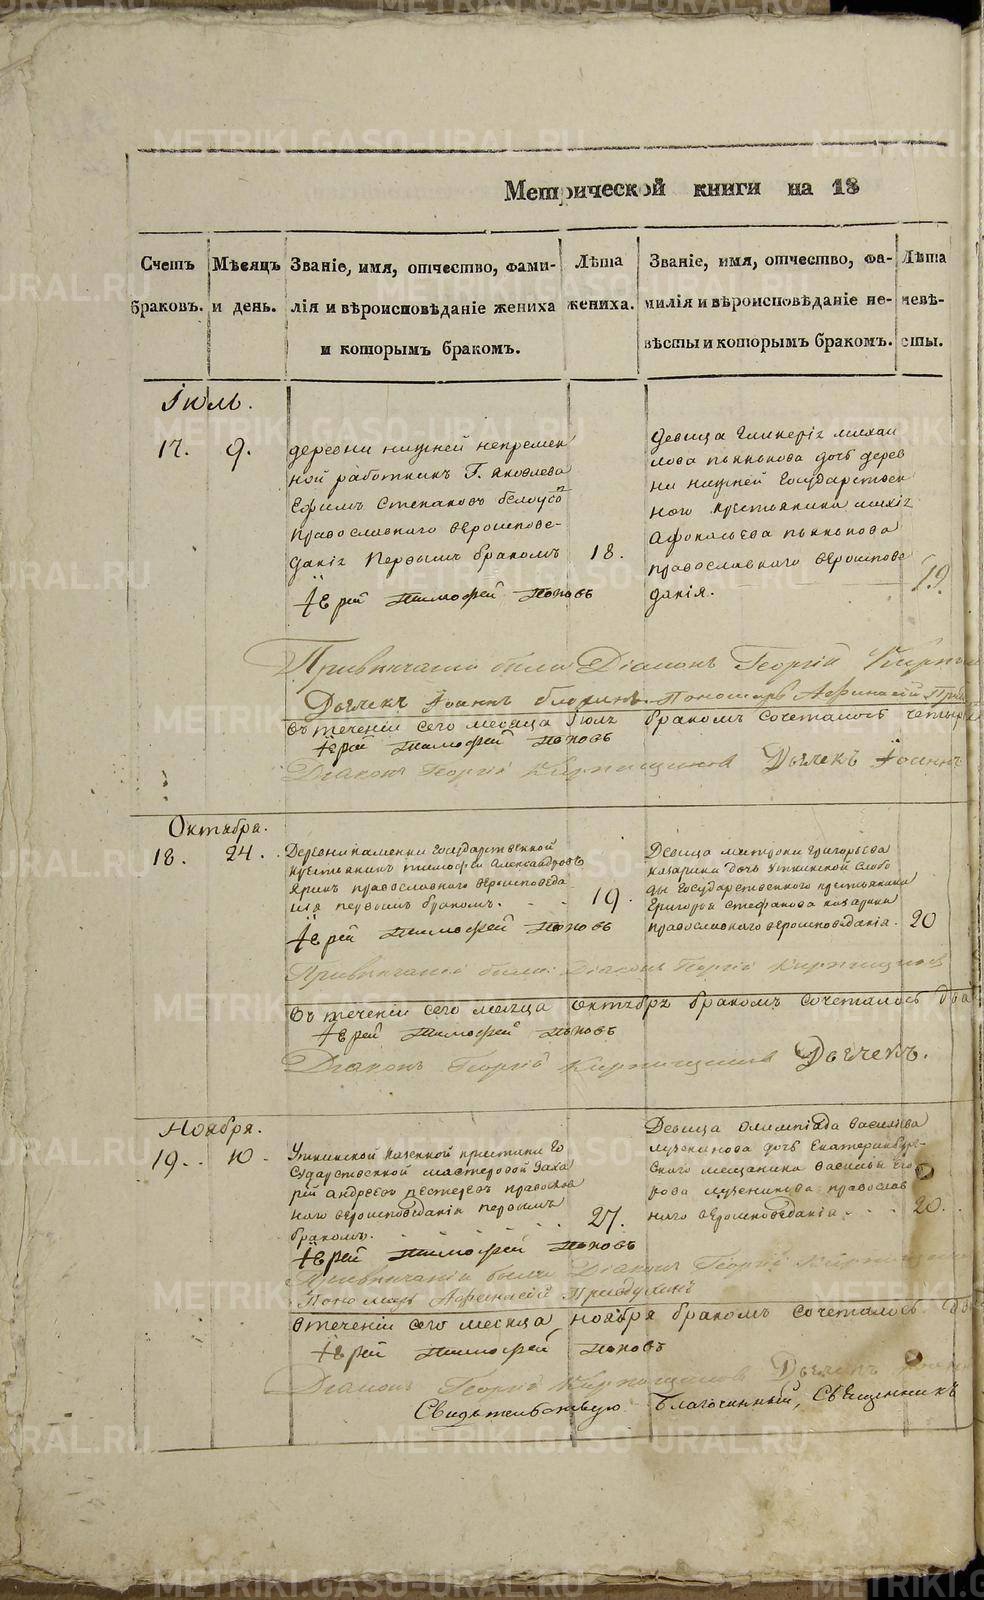 METRIKI.GASO-URAL.RU
Метрической книги на 18
Счетъ браковъ.
Мѣсяцъ и день.
Званіе, имя, отчество, фами-
лія и вѣроисповѣданіе жениха
и которымъ бракомъ.
Лѣта жениха.
Званіе, имя, отчество, фа-
милія и вѣроисповѣданіе не-
вѣсты и которымъ бракомъ.
Лѣта невѣ-
сты.
Іюль.
17. 9.
деревни нижней непремен
ной работникъ Г. Яковлева
Ефимъ Степановъ
православнаго вѣроиспове-
данія первымъ бракомъ 18.
Іерей Тимофей Поповъ
Девица Гликерія Михаи
лова дочь дерев
ни нижней Государствен
ного крестьянина
православнаго вѣроиспове
данія. 19.
Привѣнчаніи были Діаконъ Георгій
Дьячекъ Іоаннъ Пономарь Афанасій
въ теченіи сего месяца Іюля бракомъ сочеталось четыре
Іерей Тимофей Поповъ
Діаконъ Георгій Кирпищиковъ Дьячекъ Іоаннъ
Октября.
18. 24.
Деревни Каменки Государственной
крестьянинъ Тимофей Александровъ
Яринъ православнаго вѣроисповеда
нія первымъ бракомъ. 19.
Іерей Тимофей Поповъ
Девица Матрона Григорьева
Казарина дочь Уткинской слобо
ды Государственного крестьянина
Григорья Стефанова Казарина
православнаго вѣроисповеданія. 20
Привѣнчаніи были: Діаконъ Георгій Кирпищиковъ
Въ теченіи сего месяца октября бракомъ сочеталось два
Іерей Тимофей Поповъ
Діаконъ Георгій Кирпищиковъ Дьячекъ.
Ноября.
19. 10.
Уткинской казенной пристани Го
сударственной мастеровой Заха
рій Андреевъ Пестеревъ православ
наго вѣроисповеданія первымъ
бракомъ. 27.
Іерей Тимофей Поповъ
Девица Олимпіада Василіева
дочь Екатеринбург-
скаго мещанина Василья Его
рова православ
наго вѣроисповеданія. 20.
Привѣнчаніи были Діаконъ Георгій
Пономарь Афанасій
Втеченіи сего месяца ноября бракомъ сочеталось
Іерей Тимофей Поповъ
Діаконъ Георгій Кирпищиковъ Дьячекъ
Свидѣтельствую Благочинный, Священникъ